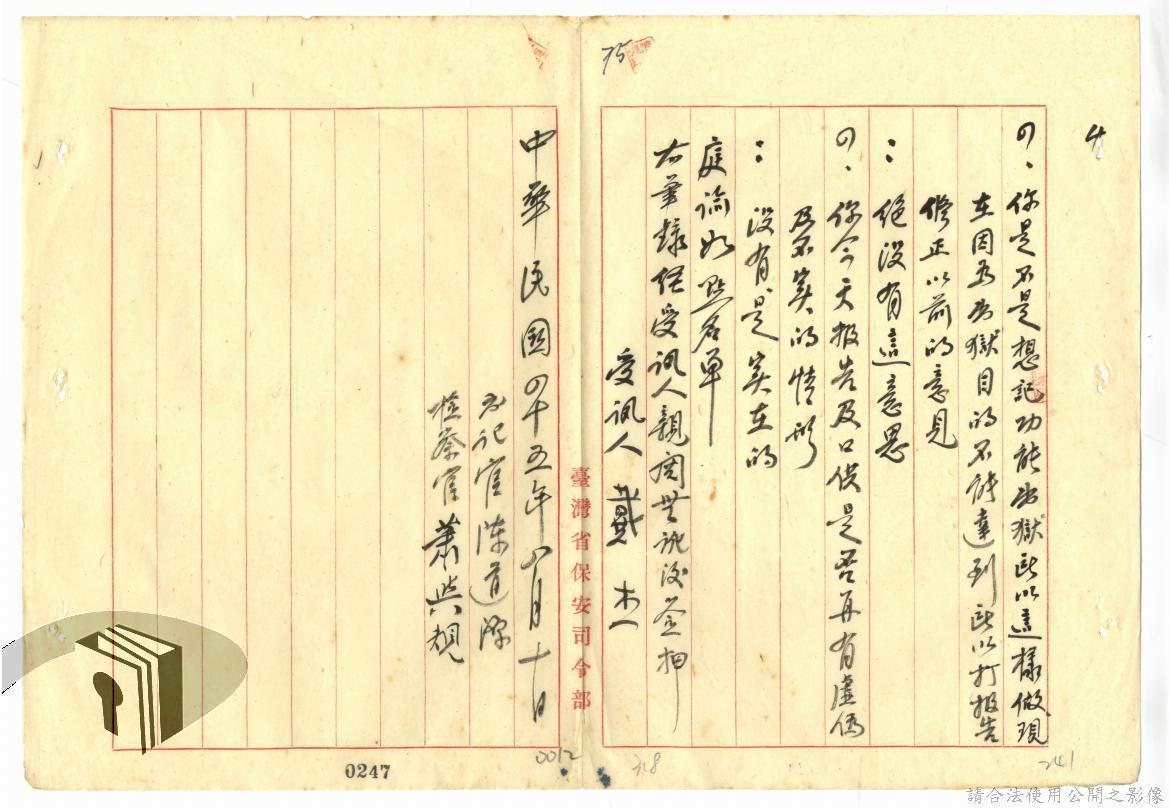 75
4
の、你是不是想記功能出獄所以這樣做現
在因為出獄目的不能達到所以打報告
修正以前的意見
：絕沒有這意思
の、你今天报告及口供是否再有虛偽
及不實的情形
：沒有、是实在的
庭諭如點名單
右筆錄經受訊人親閱無訛後簽押
受訊人 戴木一
臺灣省保安司令部
中華民國四十五年四月十日
書記官陳道深
檢察官蕭與規
0247
0012
318
241
請合法使用公開之影像